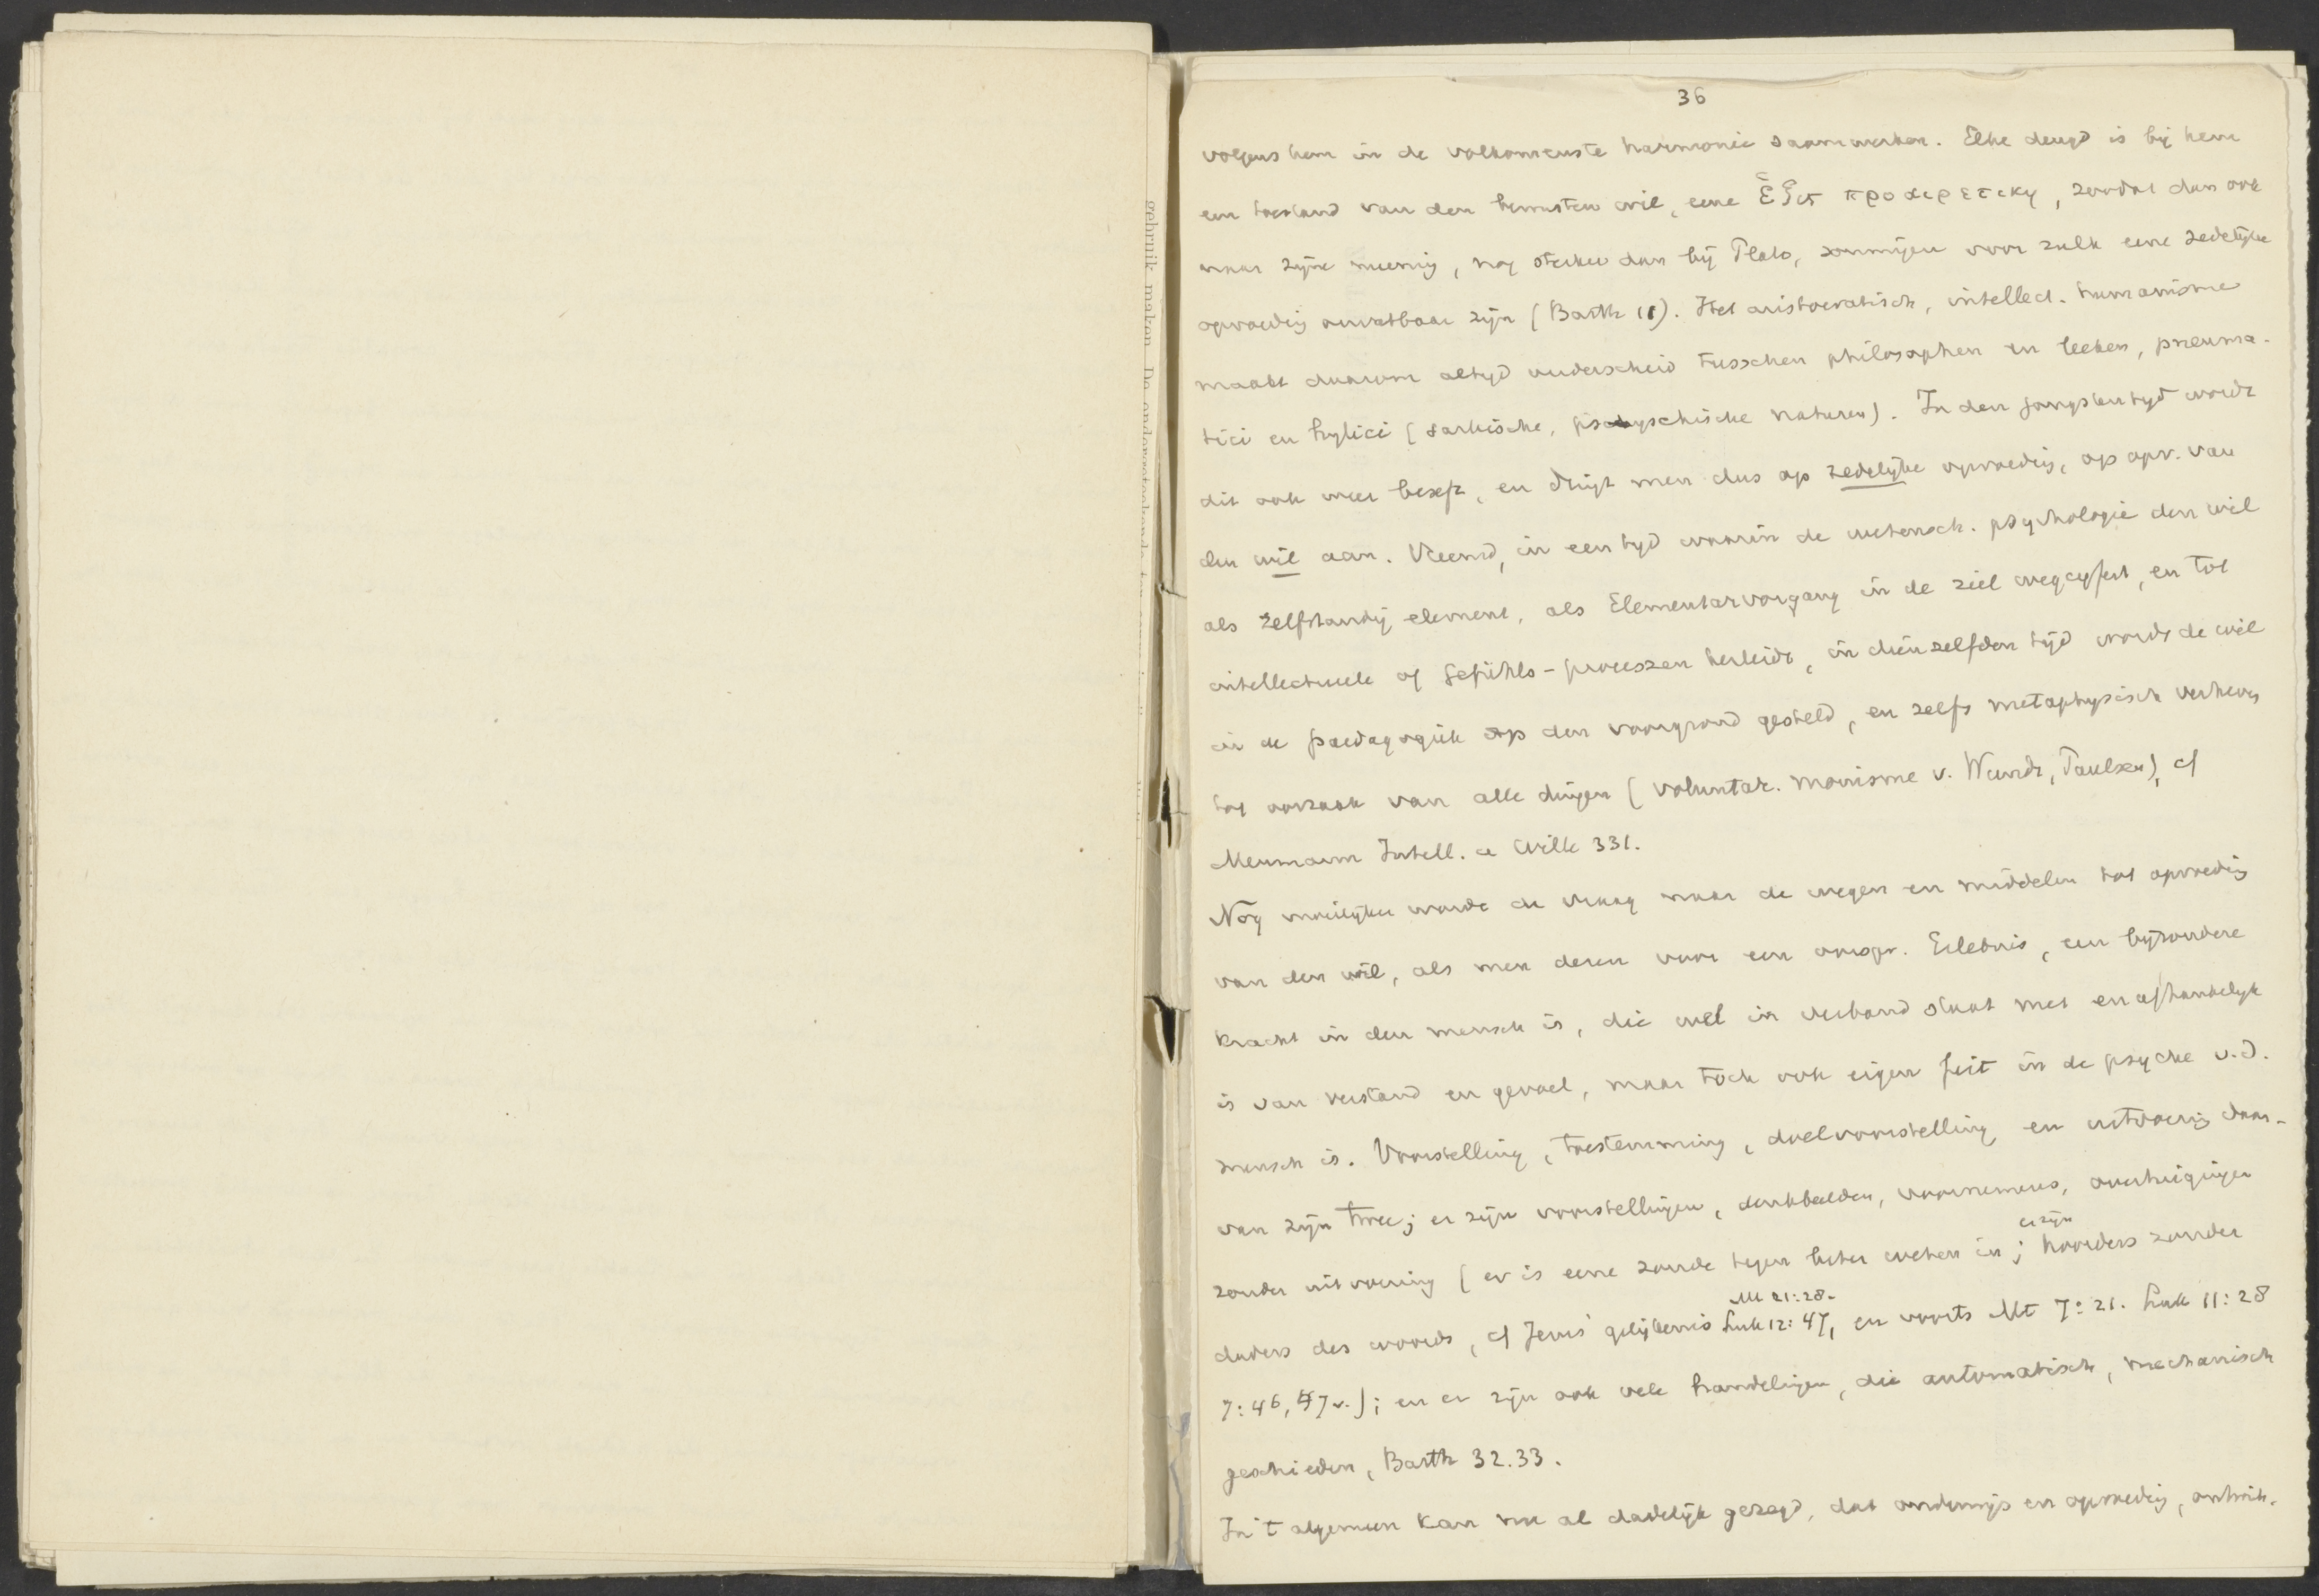 gebruik maken. De ondergeteekende
36
volgens hem in de volkomenste harmonie saamwerken. Elke deugd is bij hem
een toestand van den bewusten wil, eene ἕξις προαιρετικη, zoodat dan ook
naar zijne meening, nog sterker dan bij Plato, sommigen voor zulk eene zedelijke
opvoeding onvatbaar zijn (Barth 11). Het aristocratisch, intellect. humanisme
maakt daarom altijd onderscheid tusschen philosophen en leeken, pneuma-
tici en hylici (sarkische, psychische naturen). In den jongsten tijd wordt
dit ook weer beseft, en dringt men dus op zedelijke opvoeding, op opv. van
den wil aan. Vreemd, in een tijd waarin de wetensch. psychologie den wil
als zelfstandig element, als Elementarvorgang in de ziel wegcijfert, en tot
intellectueele of Gefühls-processen herleidt, in dienzelfden tijd wordt de wil
in de paedagogiek op den voorgrond gesteld, en zelfs metaphysisch verheven
tot oorzaak van alle dingen (voluntar. monisme v. Wundt, Paulsen), cf
Meumann Intell. u Wille 331.
Nog moeilijker wordt de vraag naar de wegen en middelen tot opvoeding
van den wil, als men dezen voor een oorspr. Erlebnis, een bijzondere
kracht in den mensch is, die wel in verband staat met en afhankelijk
is van verstand en gevoel, maar toch ook eigen feit in de psyche v.d.
mensch is. Voorstelling, toestemming, doelvoorstelling en uitvoering daar-
van zijn twee; er zijn voorstellingen, denkbeelden, voornemens, overtuigingen
zonder uitvoering (er is eene zonde tegen beter weten in; er zijn hoorders zonder
daders des woords, cf Jezus' gelijkenis Mt 21:28. Luk 12:47, en voorts Mt 7:21. Luk 11:28
7:46, 47v.); en er zijn ook vele handelingen, die automatisch, mechanisch
geschieden, Barth 32.33.
In 't algemeen kan nu al dadelijk gezegd, dat onderwijs en opvoeding, ontwik-